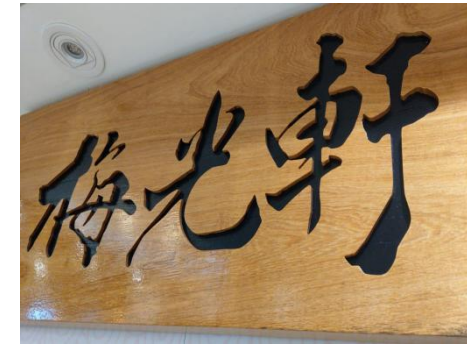 梅光軒